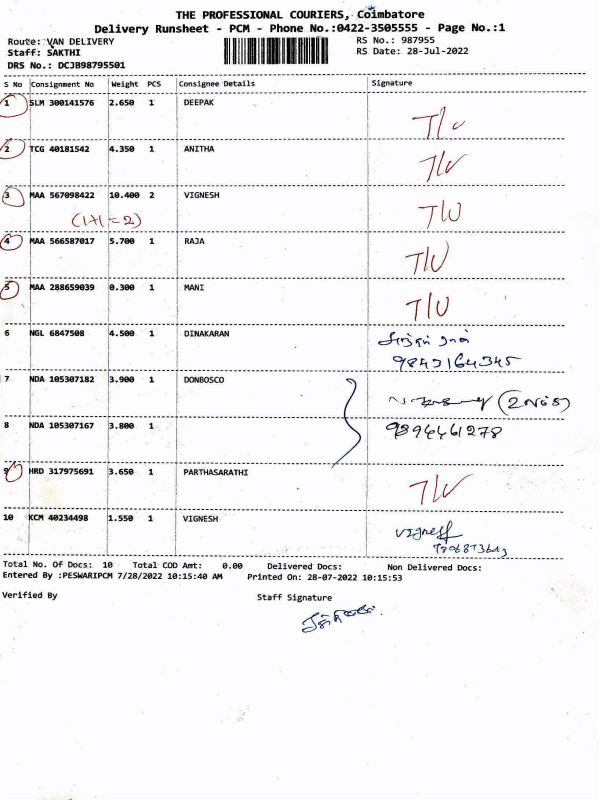 THE PROFESSIONAL COURIERS, Coimbatore
Delivery Runsheet - PCM - Phone No.:0422-3505555 - Page No.:1
Route: VAN DELIVERY RS No.: 987955
Staff: SAKTHI RS Date: 28-Jul-2022
DRS No.: DCJB98795501
S No Consignment No Weight PCS Consignee Details Signature
1 SLM 300141576 2.650 1 DEEPAK T/U
2 TCG 40181542 4.350 1 ANITHA T/U
3 MAA 567098422 10.400 2 VIGNESH T/U
(1+1=2)
4 MAA 566587017 5.700 1 RAJA T/U
5 MAA 288659039 0.300 1 MANI T/U
6 NGL 6847508 4.500 1 DINAKARAN
9843164345
7 NDA 105307182 3.900 1 DONBOSCO
8 NDA 105307167 3.800 1 9894461278
9 HRD 317975691 3.650 1 PARTHASARATHI T/U
10 KCM 40234498 1.550 1 VIGNESH Vignesh
Total No. Of Docs: 10 Total COD Amt: 0.00 Delivered Docs: Non Delivered Docs:
Entered By :PESWARIPCM 7/28/2022 10:15:40 AM Printed On: 28-07-2022 10:15:53
Verified By Staff Signature